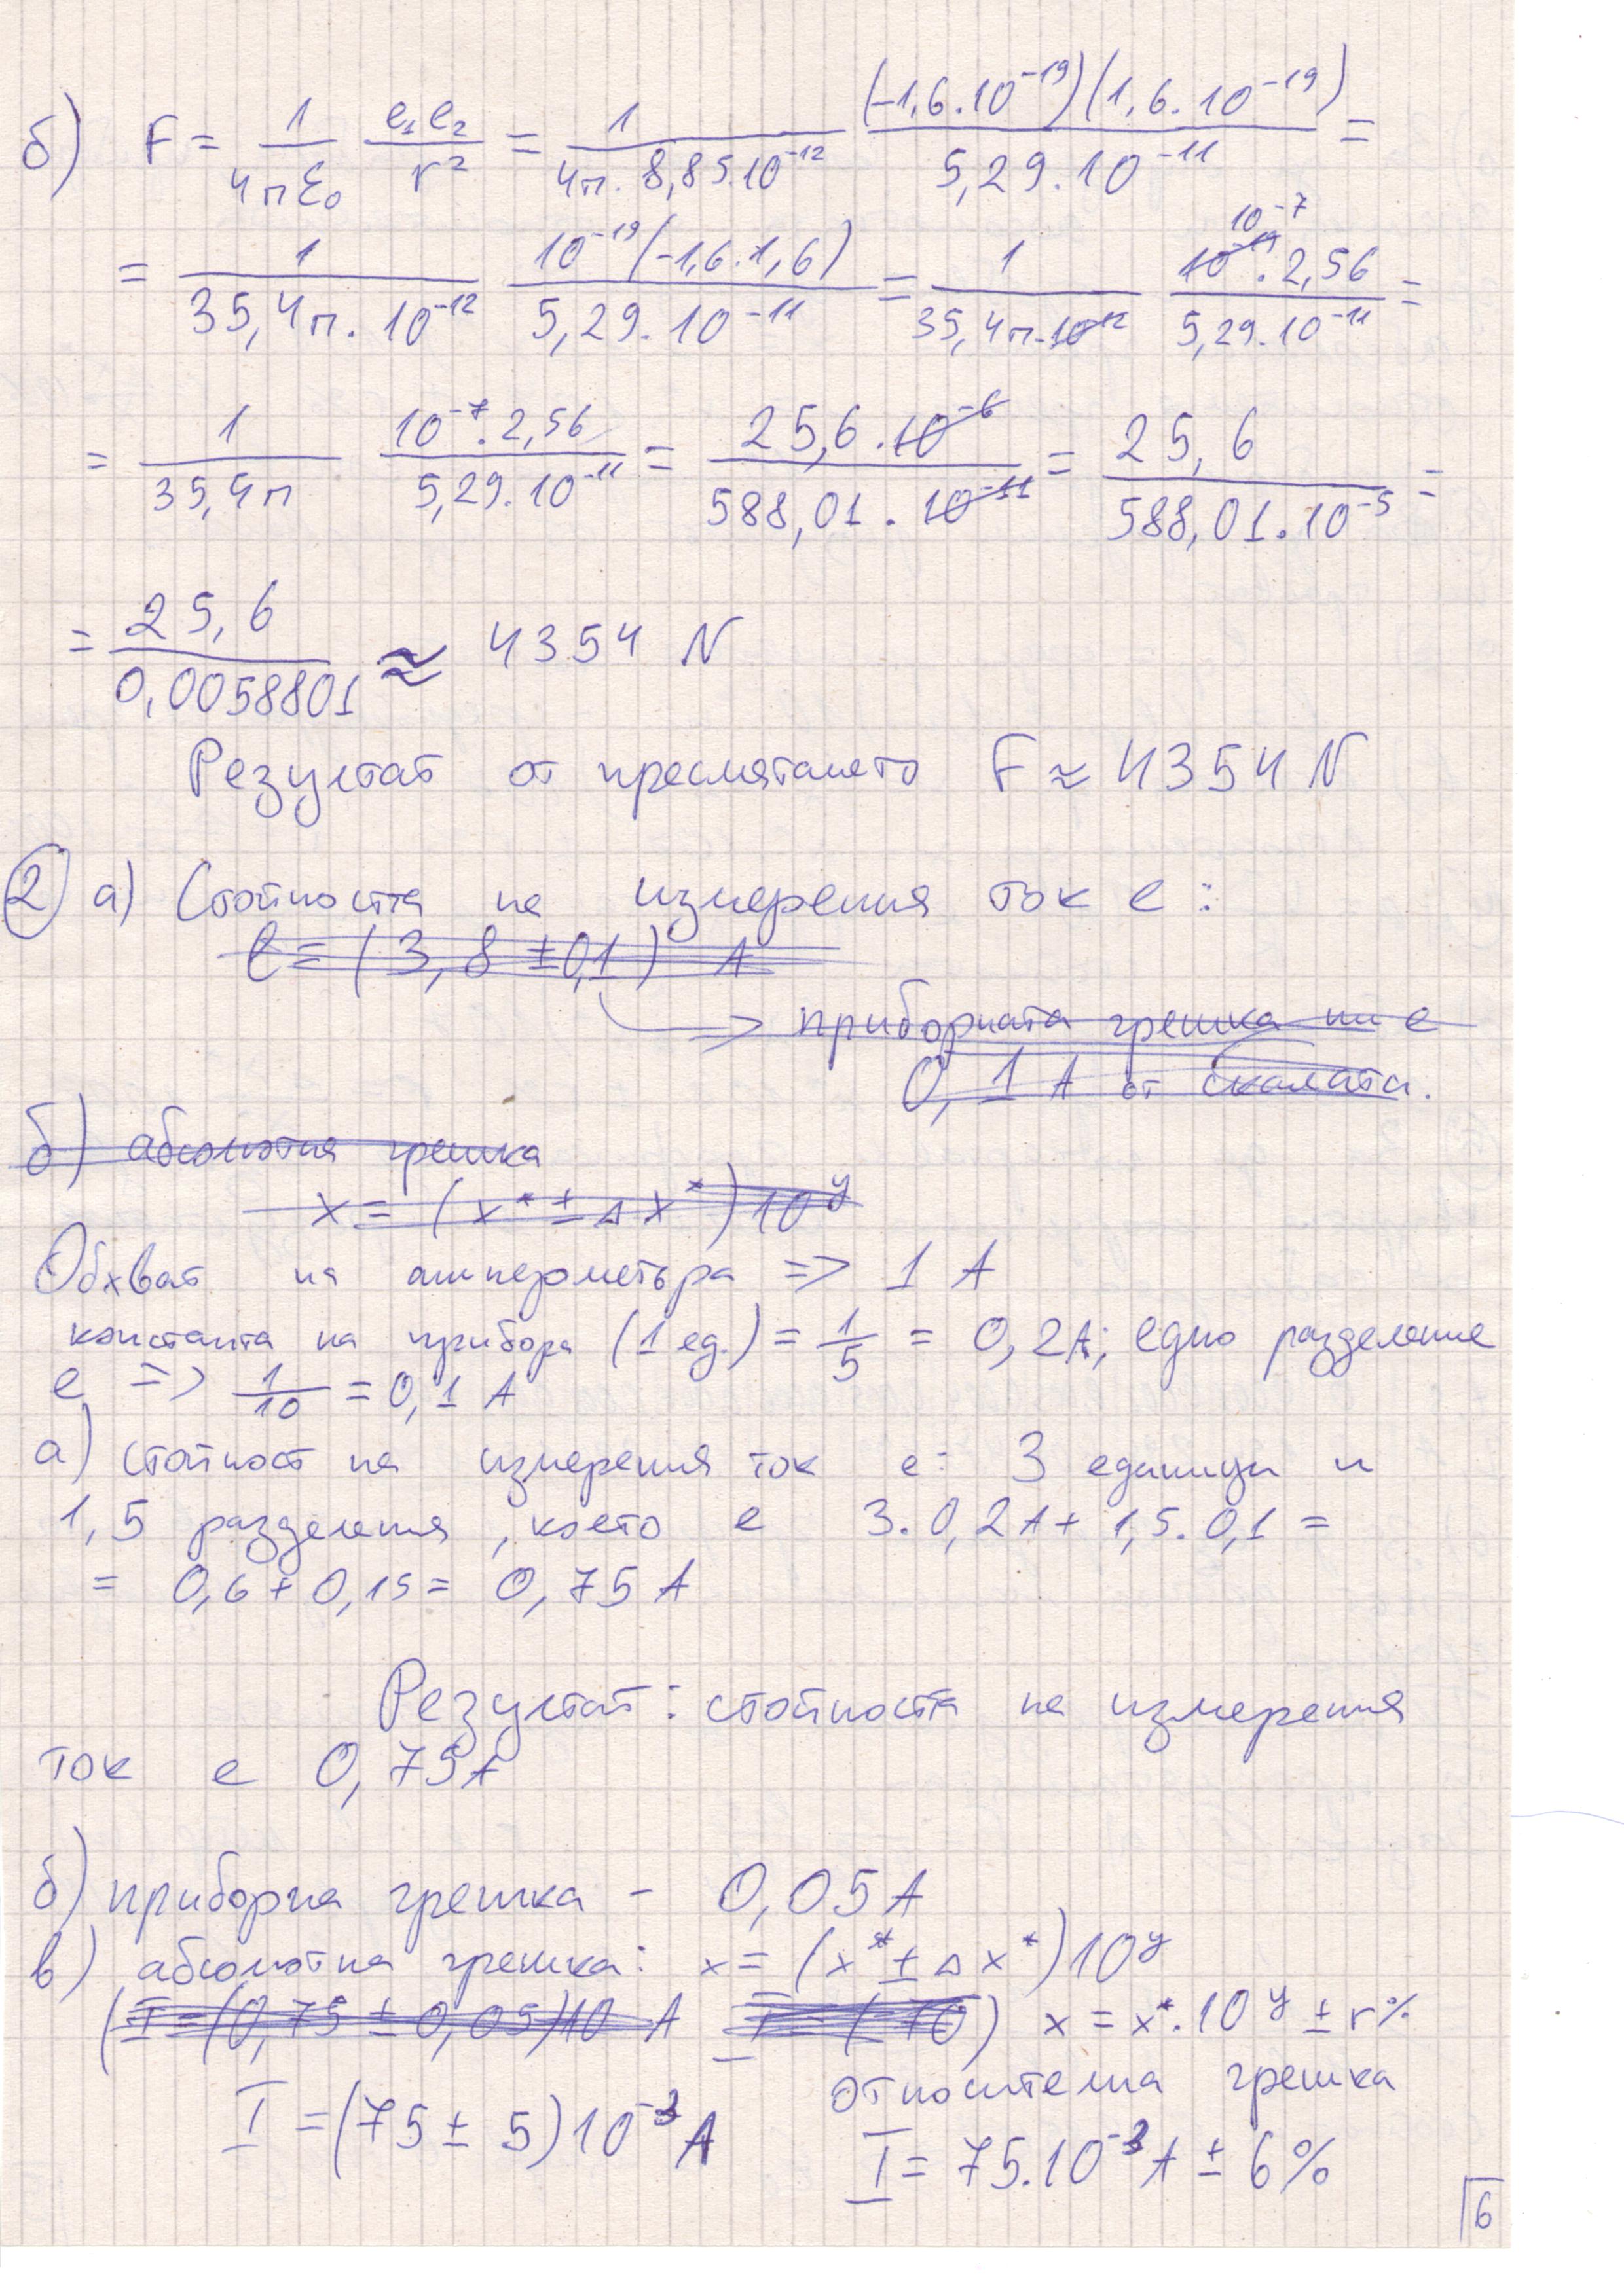 б) F = 1/4πε₀ e₁e₂/r² = 1/4π.8,85.10⁻¹² (-1,6.10⁻¹⁹)(1,6.10⁻¹⁹)/5,29.10⁻¹¹ =
= 1/35,4π.10⁻¹² 10⁻¹⁹(-1,6.1,6)/5,29.10⁻¹¹ = 1/35,4π.10⁻¹² 10⁻⁷ 10⁻¹⁹.2,56/5,29.10⁻¹¹ =
= 1/35,4π 10⁻⁷.2,56/5,29.10⁻¹¹ = 25,6.10⁻⁶/588,01.10⁻¹¹ = 25,6/588,01.10⁻⁵ =
= 25,6/0,0058801 ≈ 4354 N
Резултат от пресмятането F ≈ 4354 N
2 а) Стойността на измерения ток е:
e = (3,8 ± 0,1) A
=> приборната грешка ни е
0,1 A от скалата.
б) абсолютна грешка
x = (x* ± Δx*)10ʸ
Обхват на амперометъра => 1 A
константа на прибора (1 ед.) = 1/5 = 0,2A; едно разделение
е => 1/10 = 0,1 A
а) стойност на измерения ток е: 3 единици и
1,5 разделения, което е 3.0,2A + 1,5.0,1 =
= 0,6 + 0,15 = 0,75 A
Резултат: стойността на измерения
ток е 0,75A
б) приборна грешка - 0,05 A
в) абсолютна грешка: x = (x* ± Δx*)10ʸ
(I = (0,75 ± 0,05)10 A I = ( 10) x = x*.10ʸ ± r%
относителна грешка
I = (75 ± 5)10⁻³ A
I = 75.10⁻³ A ± 6%
6